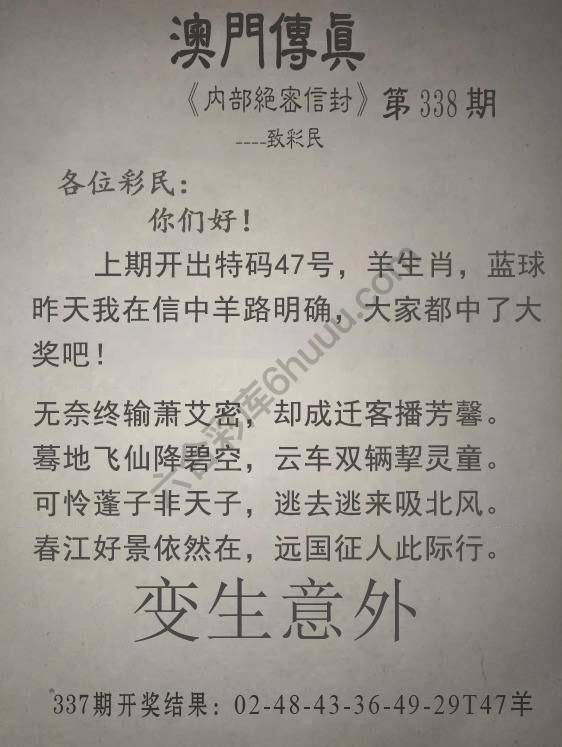 澳門傳眞
《内部絕密信封》第338期
----致彩民
各位彩民：
你们好！
上期开出特码47号，羊生肖，蓝球
昨天我在信中羊路明确，大家都中了大
奖吧！
无奈终输萧艾密，却成迁客播芳馨。
蓦地飞仙降碧空，云车双辆挈灵童。
可怜蓬子非天子，逃去逃来吸北风。
春江好景依然在，远国征人此际行。
变生意外
337期开奖结果：02-48-43-36-49-29T47羊
六合彩库6huuu.com